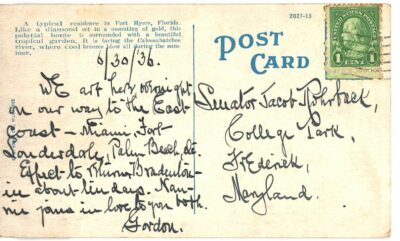 A typical residence in Fort Myers, Florida.
Like a diamond set in a mounting of gold, this
palatial home is surrounded with a beautiful
tropical garden. It is facing the Caloosahatchee
river, where cool breezes blow all during the sum-
mer.
2B27-15
POST
CARD
1 CENT 1
6/30/36.
We are here overnight
on our way to the East
Coast - Miami, Fort
Palm Beach, etc.
Expect to return Bradenton
in about ten days. Nan-
nie joins in love to you both.
Gordon.
Senator Jacob Rohrback,
College Park,
Frederick,
Maryland.